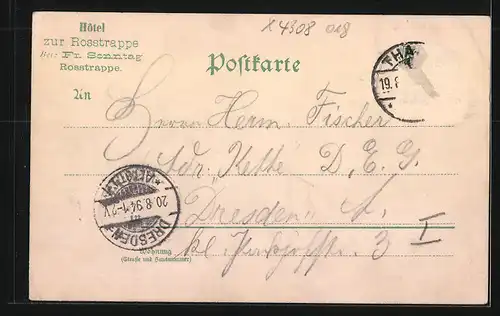 X 4308 018
Hôtel
zur Rosstrappe
Bes: Fr. Sonntag
Rosstrappe.
Postkarte
THA
19. 8
An
Herrn Herm. Fischer
Adr. Kette D. E. G.
Dresden A.
kl. 3 I
DRESDEN ALTST.
20.8.94. 1-2 V
Wohnung
(Straße und Hausnummer)